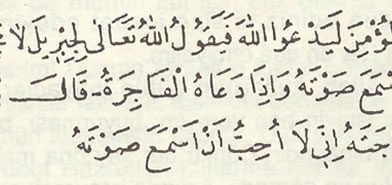 ؤْمِنَ لَيَدْعُوا اللهَ فَيَقُولُ اللهُ تَعَالَى لِجِبْرِيلَ لَا
سْمَعَ صَوْتَهُ وَاِذَا دَعَاهُ الْفَاجِرَةُ قَالَ
جَتَهُ اِنِّي لَا اُحِبُّ اَنْ اَسْمَعَ صَوْتَهُ